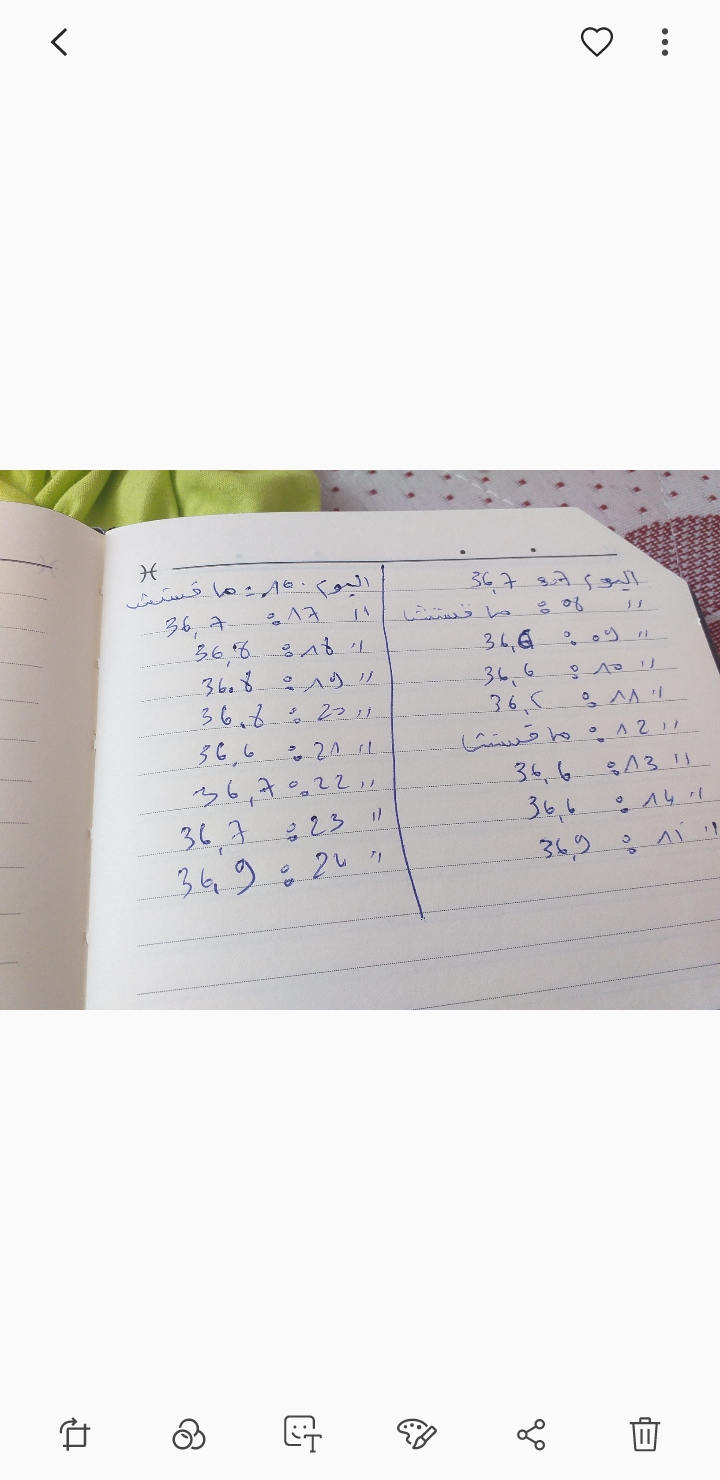 اليوم 7: 36,7
" 08: ما قستش
" 09: 36,6
" 10: 36,6
" 11: 36,
" 12: ما قستش
" 13: 36,6
" 14: 36,6
" 15: 36,9
اليوم 16: ما قستش
" 17: 36,7
" 18: 36,8
" 19: 36.8
" 20: 36.8
" 21: 36,6
" 22: 36,7
" 23: 36,7
" 24: 36,9